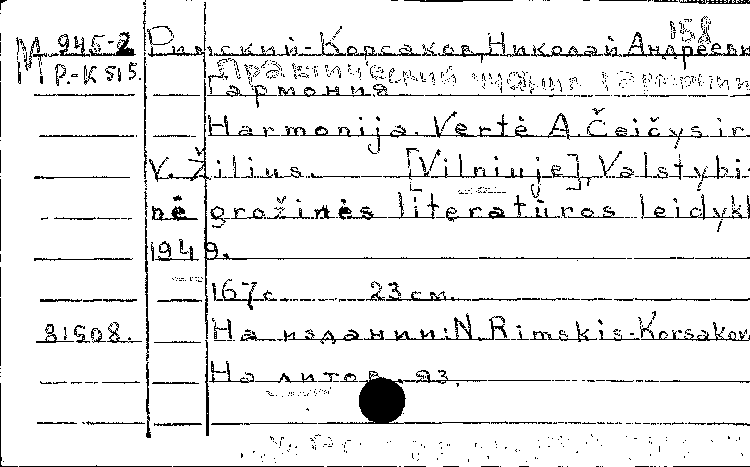 158
М 945-2 Римский-Корсаков, Николай Андрееви
Р.-К 515. Практический учебник гармонии
Гармония
Harmonija. Vertė A. Čeičys ir
V. Žilius. [Vilniuje], Valstybi-
nė grožinės literatūros leidykl
1949.
167 с. 23 см.
81508. На издании: N. Rimskis-Korsakov
На литов. яз.